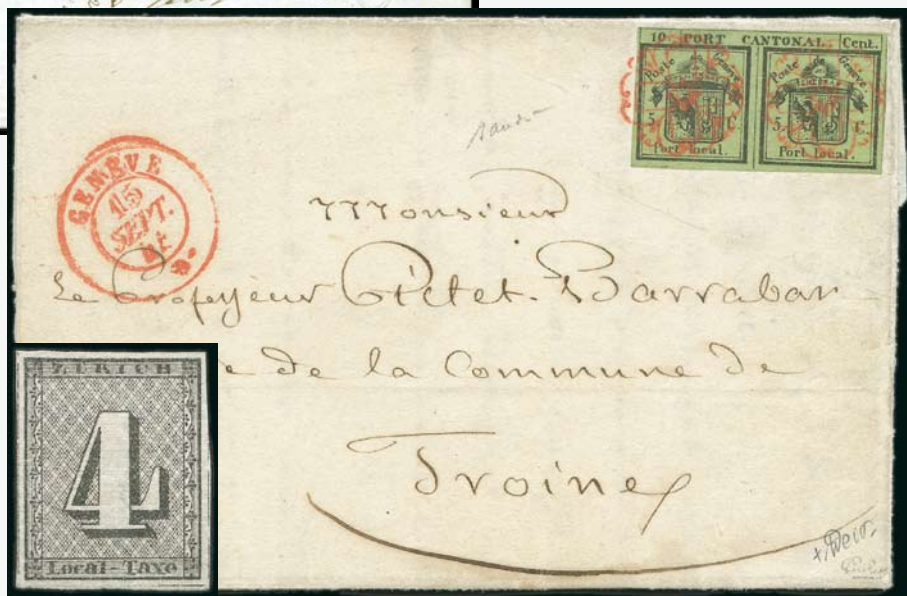 10 PORT CANTONAL Cent.
Poste de Genève
5 C.
Port local.
Poste de Genève
5 C.
Port local.
GENÈVE
15
SEPT.
Monsieur
Le Professeur Pictet-Barraban
e de la Commune de
Troinex
ZÜRICH
4
Local-Taxe